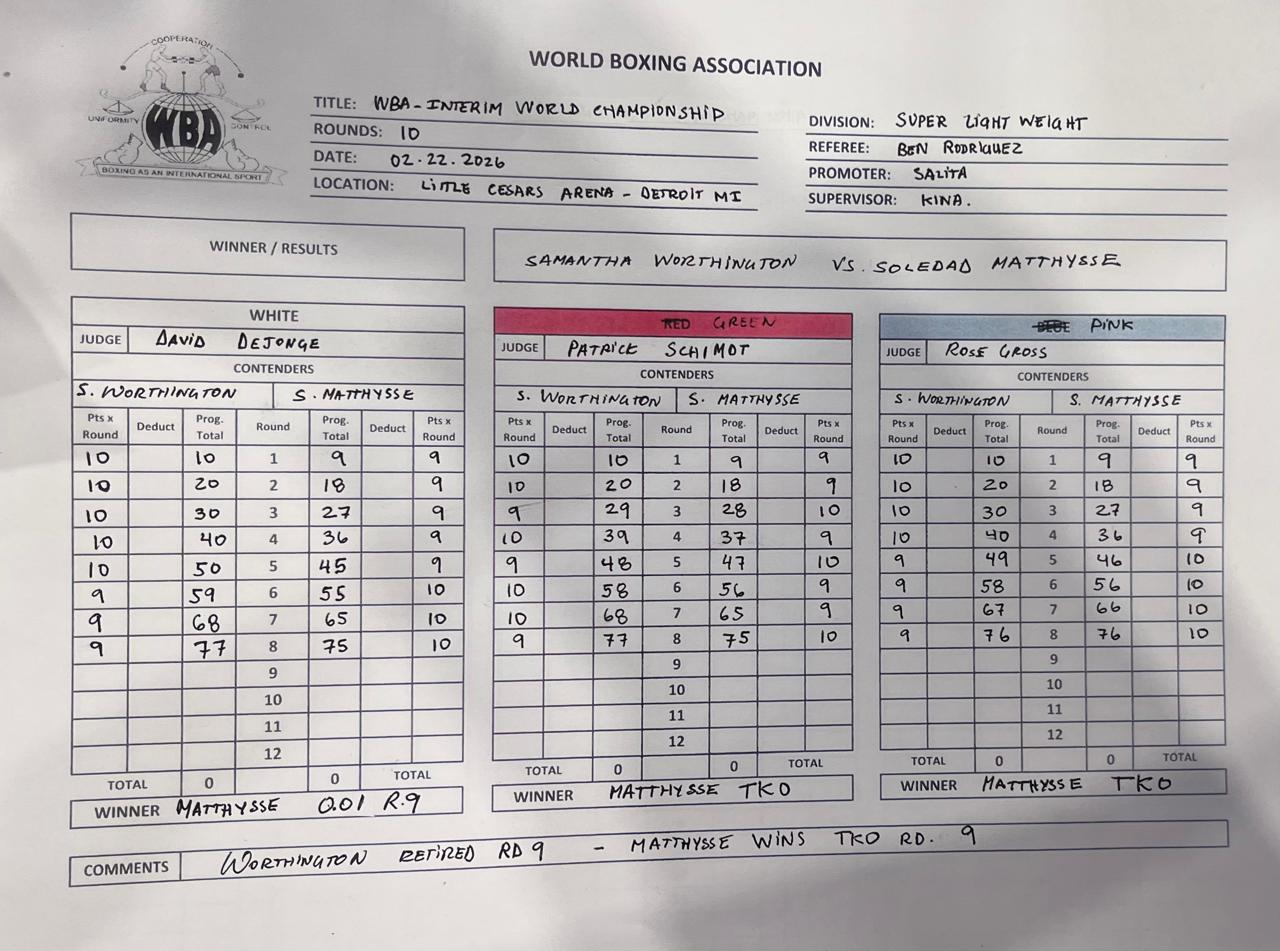 COOPERATION
UNIFORMITY WBA CONTROL
BOXING AS AN INTERNATIONAL SPORT
WORLD BOXING ASSOCIATION
TITLE: WBA-INTERIM WORLD CHAMPIONSHIP
ROUNDS: 10
DATE: 02.22.2026
LOCATION: LITTLE CESARS ARENA - DETROIT MI
DIVISION: SUPER LIGHT WEIGHT
REFEREE: BEN RODRIGUEZ
PROMOTER: SALITA
SUPERVISOR: KINA.
WINNER / RESULTS
SAMANTHA WORTHINGTON VS. SOLEDAD MATTHYSSE
WHITE
JUDGE DAVID DEJONGE
CONTENDERS
S. WORTHINGTON S. MATTHYSSE
Pts x Round Deduct Prog. Total Round Prog. Total Deduct Pts x Round
10 10 1 9 9
10 20 2 18 9
10 30 3 27 9
10 40 4 36 9
10 50 5 45 9
9 59 6 55 10
9 68 7 65 10
9 77 8 75 10
9
10
11
12
TOTAL 0 0 TOTAL
WINNER MATTHYSSE 0.01 R.9
RED GREEN
JUDGE PATRICK SCHIMDT
CONTENDERS
S. WORTHINGTON S. MATTHYSSE
Pts x Round Deduct Prog. Total Round Prog. Total Deduct Pts x Round
10 10 1 9 9
10 20 2 18 9
9 29 3 28 10
10 39 4 37 9
9 48 5 47 10
10 58 6 56 9
10 68 7 65 9
9 77 8 75 10
9
10
11
12
TOTAL 0 0 TOTAL
WINNER MATTHYSSE TKO
PINK
JUDGE ROSE GROSS
CONTENDERS
S. WORTHINGTON S. MATTHYSSE
Pts x Round Deduct Prog. Total Round Prog. Total Deduct Pts x Round
10 10 1 9 9
10 20 2 18 9
10 30 3 27 9
10 40 4 36 9
9 49 5 46 10
9 58 6 56 10
9 67 7 66 10
9 76 8 76 10
9
10
11
12
TOTAL 0 0 TOTAL
WINNER MATTHYSSE TKO
COMMENTS WORTHINGTON RETIRED RD 9 - MATTHYSSE WINS TKO RD. 9